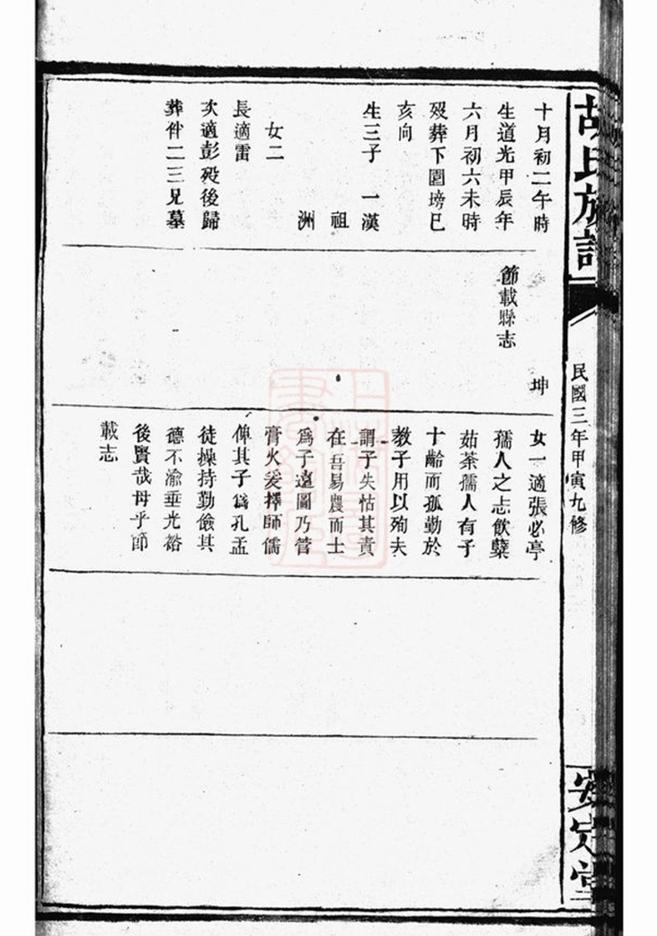 胡氏族譜
民國三年甲寅九修
安定堂
十月初二午時
生道光甲辰年
六月初六未時
歿葬下園塝巳
亥向
生三子 一漢
祖
洲
女二
長適雷
次適彭歿後歸
葬件二三兄墓
坤
節載縣志
女一適張必亭
孺人之志飲蘗
茹荼孺人有子
十齡而孤勤於
教子用以殉夫
謂子失怙其責
在吾易農而士
為子遠圖乃管
膏火爰擇師儒
俾其子為孔孟
徒操持勤儉其
德不渝垂光裕
後賢哉母乎節
載志